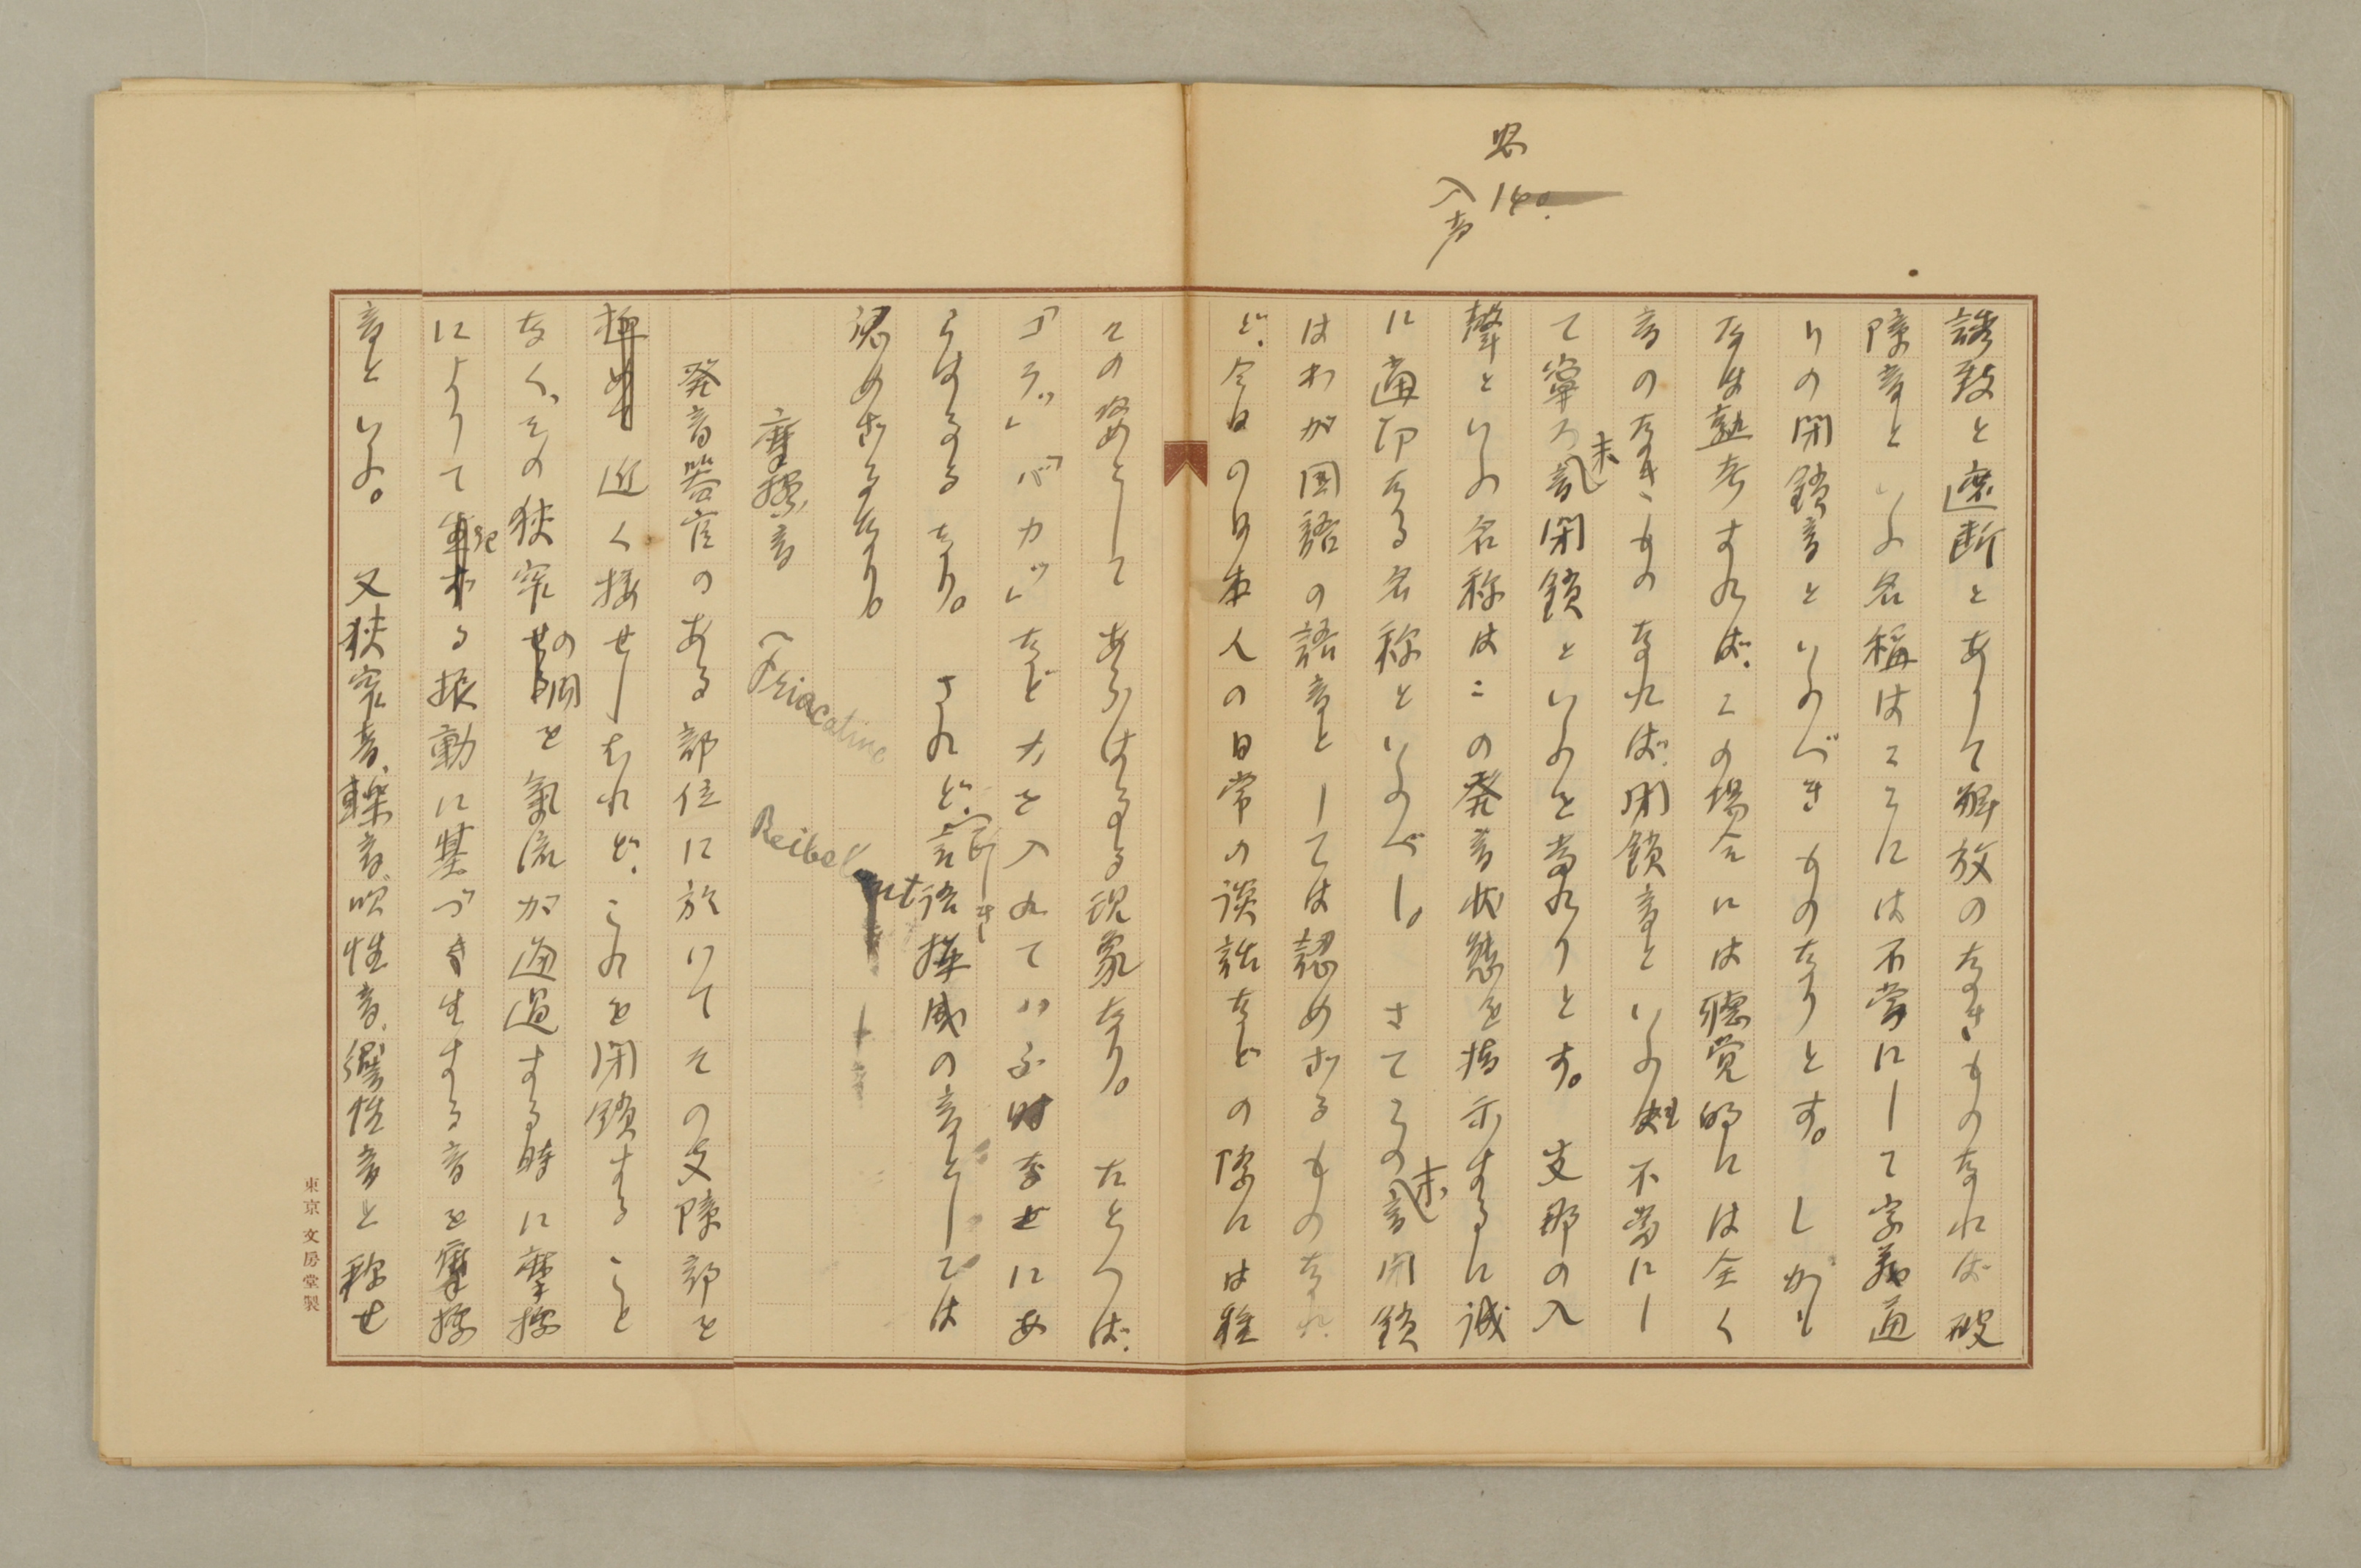 入声
誘致と遮断とありて解放のなきものなれば破
障音といふ名稱はここには不當にして字義通
りの閉鎖音といふべきものなりとす。しかも
なほ熟考すれば、この場合には聴覚的には全く
音のなきものなれば、閉鎖音といふ 不當にし
て寧ろ 末閉鎖といふを當れりとす。支那の入
聲といふ名称はこの発音状態を指示するに誠
に適切なる名称といふべし。さてこの 末閉鎖
はわが国語の語音としては認めざるものなれ
ど、今日の日本人の日常の談話などの際には雑
この姿としてあらはるる現象なり。たとへば、
「コラッ」「バカッ」など力を入れていふ時などにあ
らはるるなり。されど、言語 の音としては
認めざるなり。
摩擦音 (Friacative Reibelaut
発音器官のある部位に於けてその支障部を
極めて近く接せしむれど、これを閉鎖すること
なく、その狭窄の間を氣流が通過する時に摩擦
によりて起る振動に基づき生する音を摩擦
音といふ。又狭窄音、軋音、吹性音、 性音と称せ
東京 文房堂製